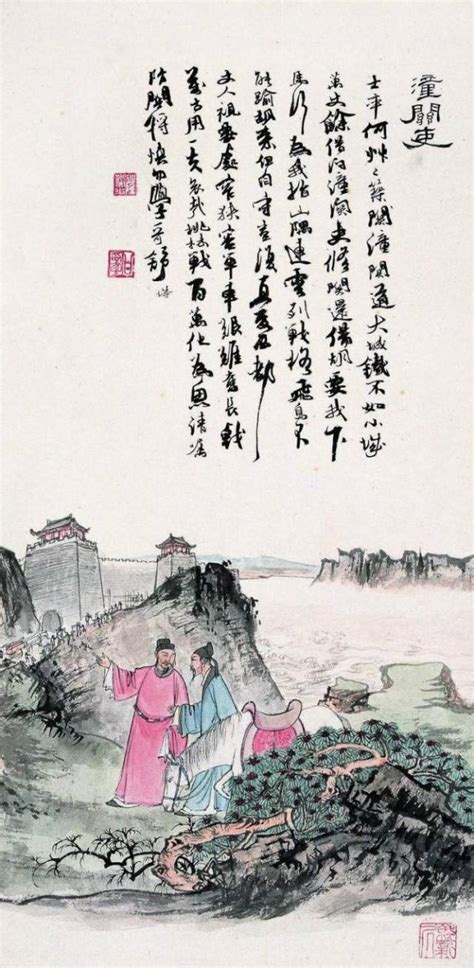 潼關吏
士卒何艸々築關潼關道大城鐵不如小城
萬丈餘借問潼關吏修關還備胡要我下
馬行為我指山隅連雲列戰格飛鳥不
能踰胡來但自守豈復憂西都
丈人視要處窄狹容單車艱難奮長戟
萬古用一夫哀哉桃林戰百萬化為魚請囑
防關將慎勿學哥舒